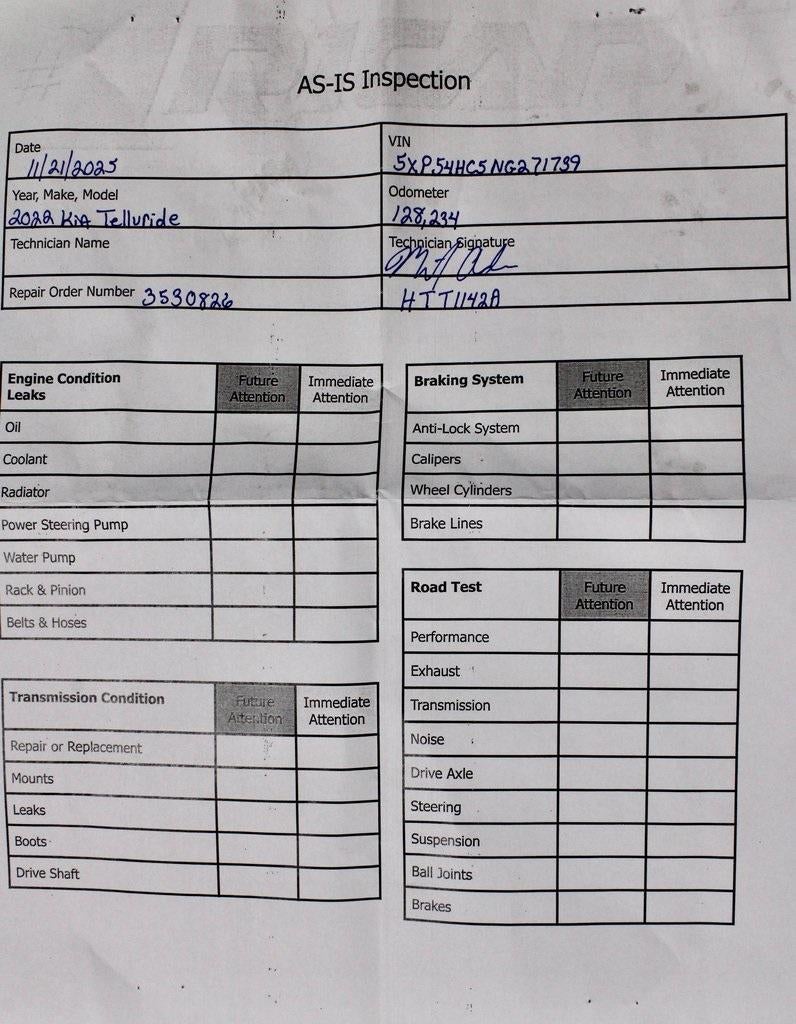 AS-IS Inspection
Date
VIN
11/21/2025
5XP54HC5NG271739
Year, Make, Model
Odometer
2022 Kia Telluride
128,234
Technician Name
Technician Signature
Repair Order Number 3530826
HTT1142A
Engine Condition Leaks
Future Attention
Immediate Attention
Oil
Coolant
Radiator
Power Steering Pump
Water Pump
Rack & Pinion
Belts & Hoses
Transmission Condition
Future Attention
Immediate Attention
Repair or Replacement
Mounts
Leaks
Boots
Drive Shaft
Braking System
Future Attention
Immediate Attention
Anti-Lock System
Calipers
Wheel Cylinders
Brake Lines
Road Test
Future Attention
Immediate Attention
Performance
Exhaust
Transmission
Noise
Drive Axle
Steering
Suspension
Ball Joints
Brakes